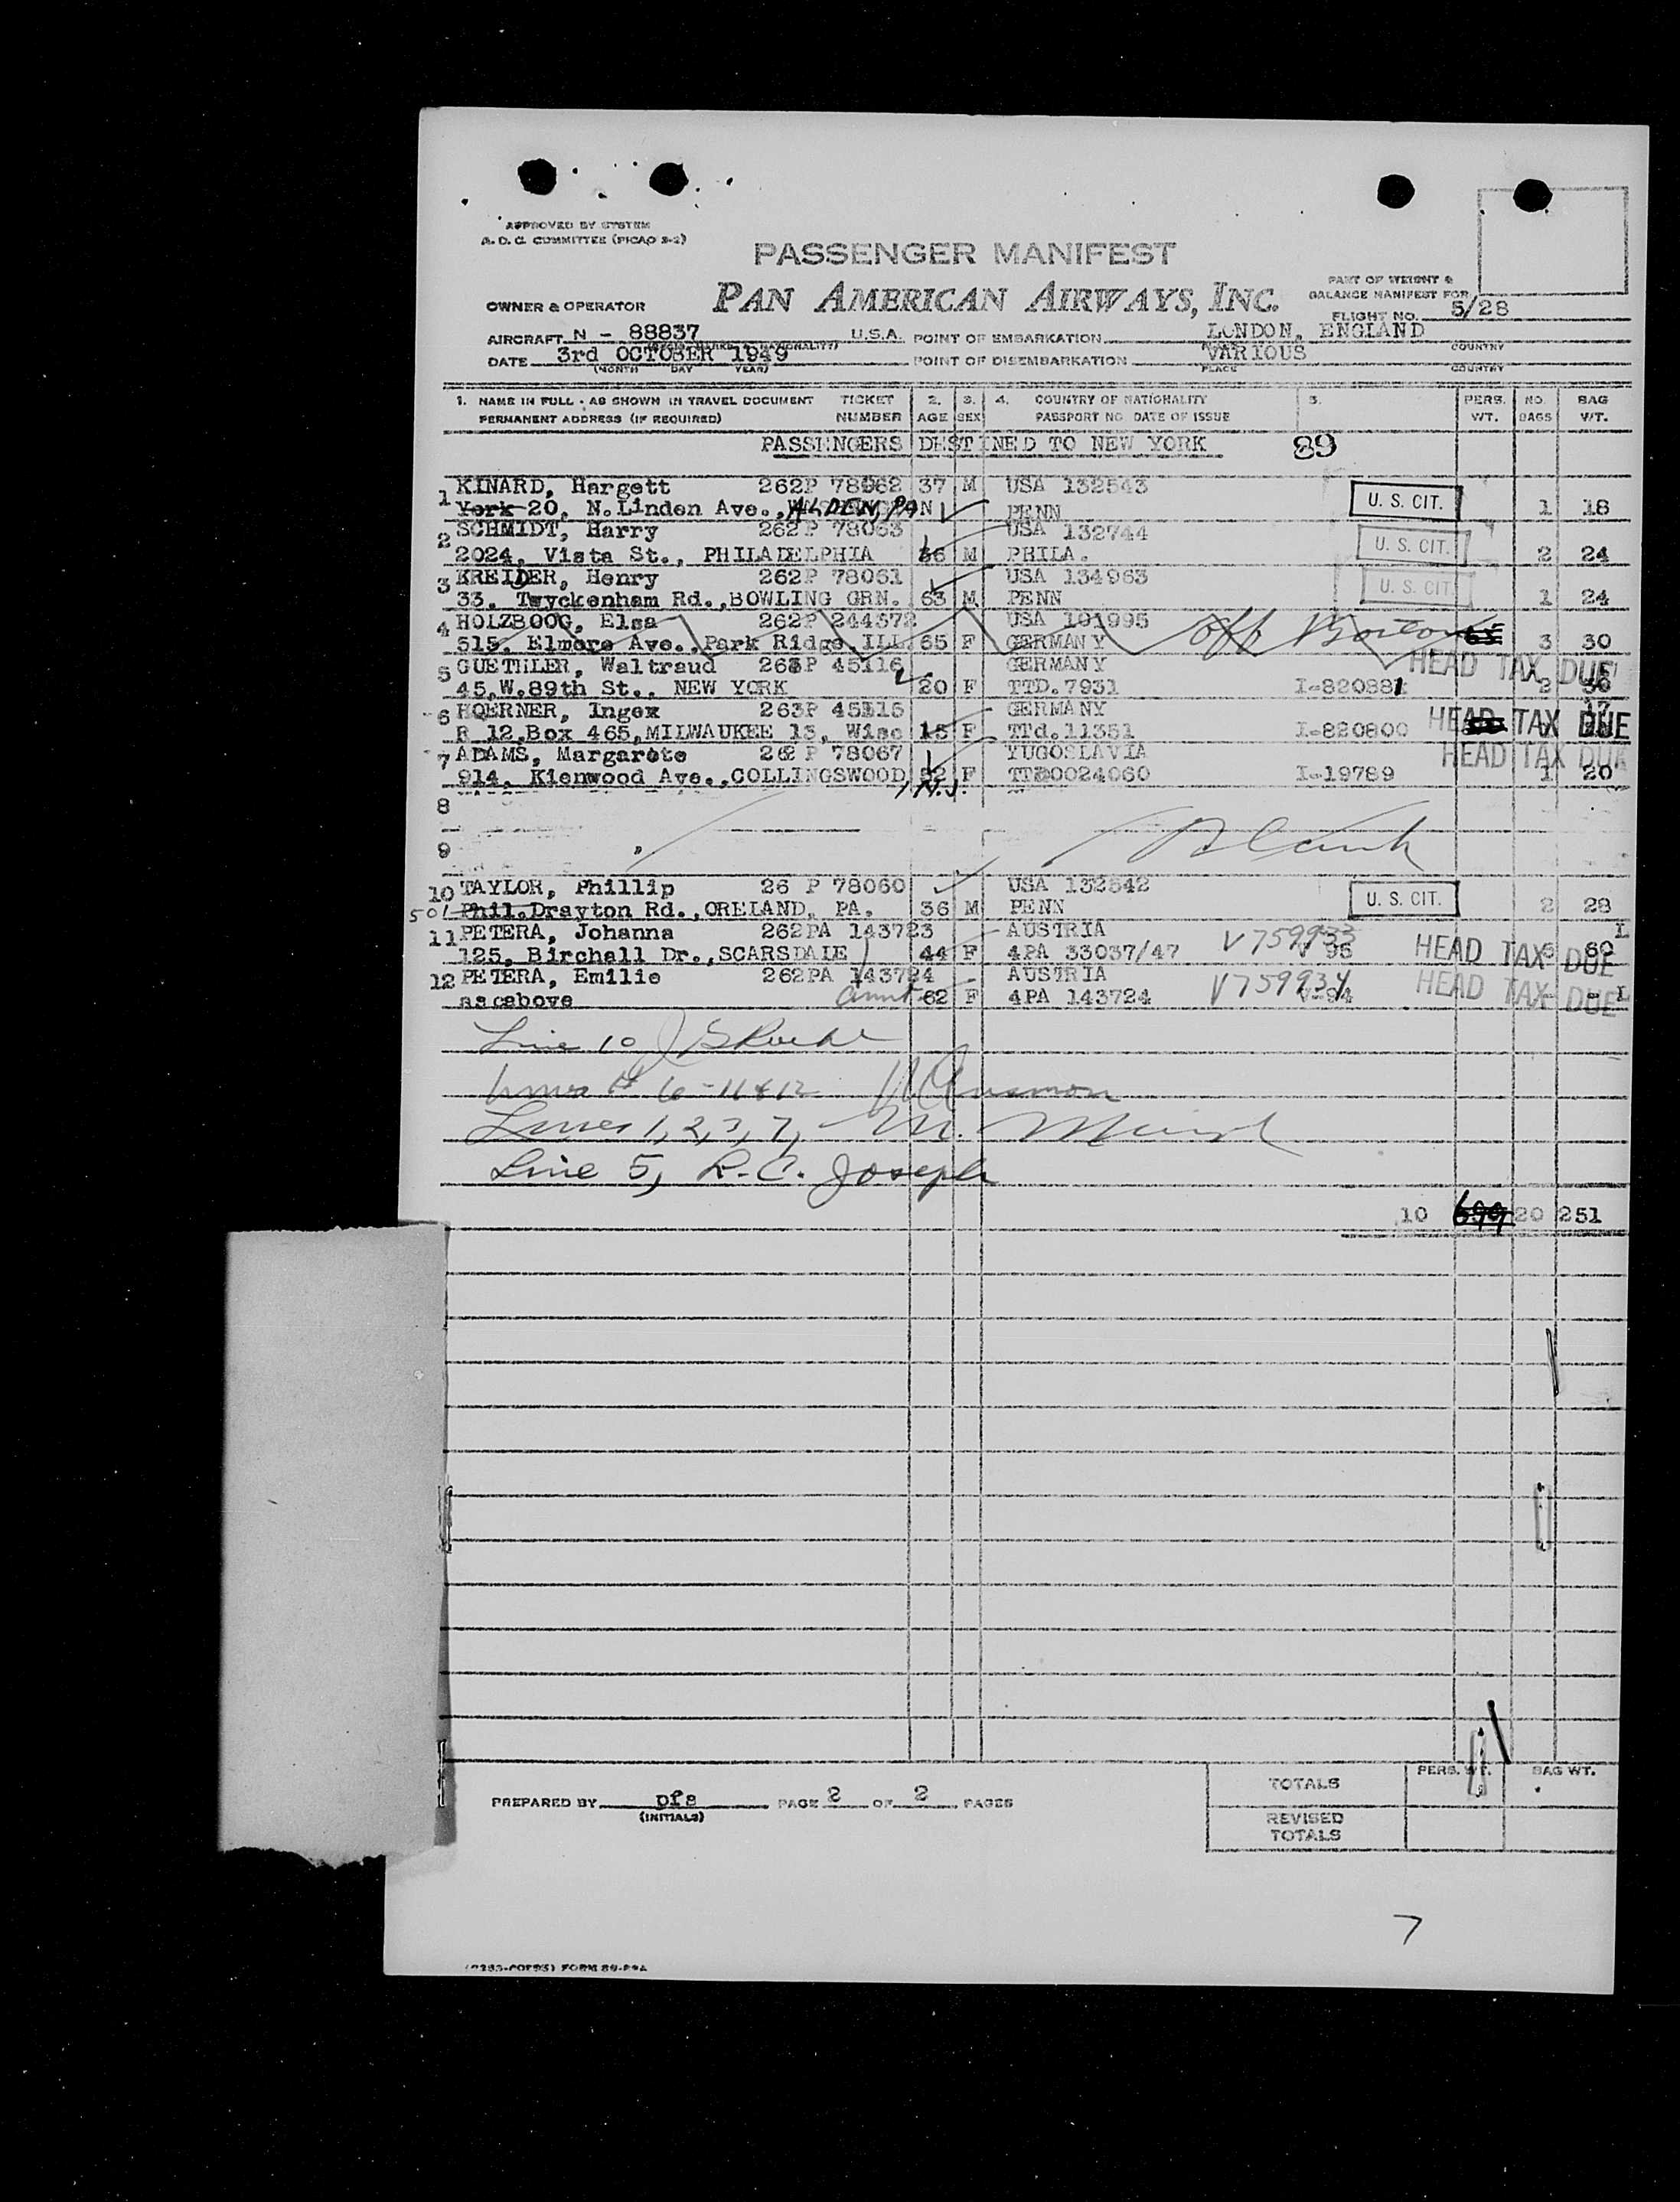 APPROVED BY SYSTEM
A. O. C. COMMITTEE (PICAO 2-2)
PASSENGER MANIFEST
PAN AMERICAN AIRWAYS, INC.
PART OF WEIGHT &
BALANCE MANIFEST FOR
FLIGHT NO. 5/28
OWNER & OPERATOR
AIRCRAFT N - 88837 U.S.A. POINT OF EMBARKATION LONDON, ENGLAND
DATE 3rd OCTOBER 1949 POINT OF DISEMBARKATION VARIOUS
(MONTH DAY YEAR) PLACE COUNTRY
1. NAME IN FULL - AS SHOWN IN TRAVEL DOCUMENT TICKET 2. 3. 4. COUNTRY OF NATIONALITY 5. PERS. NO. BAG
PERMANENT ADDRESS (IF REQUIRED) NUMBER AGE SEX PASSPORT NO. DATE OF ISSUE WT. BAGS WT.
PASSENGERS DESTINED TO NEW YORK 89
1 KINARD, Hargett 262P 78062 37 M USA 132543
York 20, N.Linden Ave., ALDEN, PA PENN U. S. CIT. 1 18
2 SCHMIDT, Harry 262P 78063 USA 132744
2024, Vista St., PHILADELPHIA 36 M PHILA. U. S. CIT. 2 24
3 KREIDER, Henry 262P 78061 USA 134963
33, Twyckenham Rd.,BOWLING GRN. 63 M PENN U. S. CIT. 1 24
4 HOLZBOOG, Elsa 262P 244372 USA 101995
515, Elmore Ave.,Park Ridge.ILL 65 F GERMANY off Boston 3 30
5 GUETHLER, Waltraud 263P 45116 GERMANY HEAD TAX DUE
45,W.89th St., NEW YORK 20 F TTD.7931 I-820881 2
6 HOERNER, Inge 263P 45115 GERMANY 17
R 12,Box 465,MILWAUKEE 13, Wisc 15 F TTd.11351 I-820800 HEAD TAX DUE
7 ADAMS, Margarete 262 P 78067 YUGOSLAVIA HEAD TAX DUE
914, Kienwood Ave.,COLLINGSWOOD, N.J. 52 F 0024060 I-19789 1 20
8
9 Blank
10 TAYLOR, Phillip 26 P 78060 USA 132542
501 Phil.Drayton Rd.,ORELAND, PA. 36 M PENN U. S. CIT. 2 28
11 PETERA, Johanna 262PA 143723 AUSTRIA V759933 L
125, Birchall Dr.,SCARSDALE 44 F 4PA 33037/47 V 93 HEAD TAX DUE 60
12 PETERA, Emilie 262PA 143724 AUSTRIA V759934 HEAD TAX DUE
as above aunt 62 F 4PA 143724 V-94 - L
Line 10
Lines # 6-11&12
Lines 1, 2, 3, 7, M.
Line 5, R.C. Joseph
10 699 20 251
TOTALS PERS. WT. BAG WT.
PREPARED BY pfs PAGE 2 OF 2 PAGES
(INITIALS)
REVISED
TOTALS
7